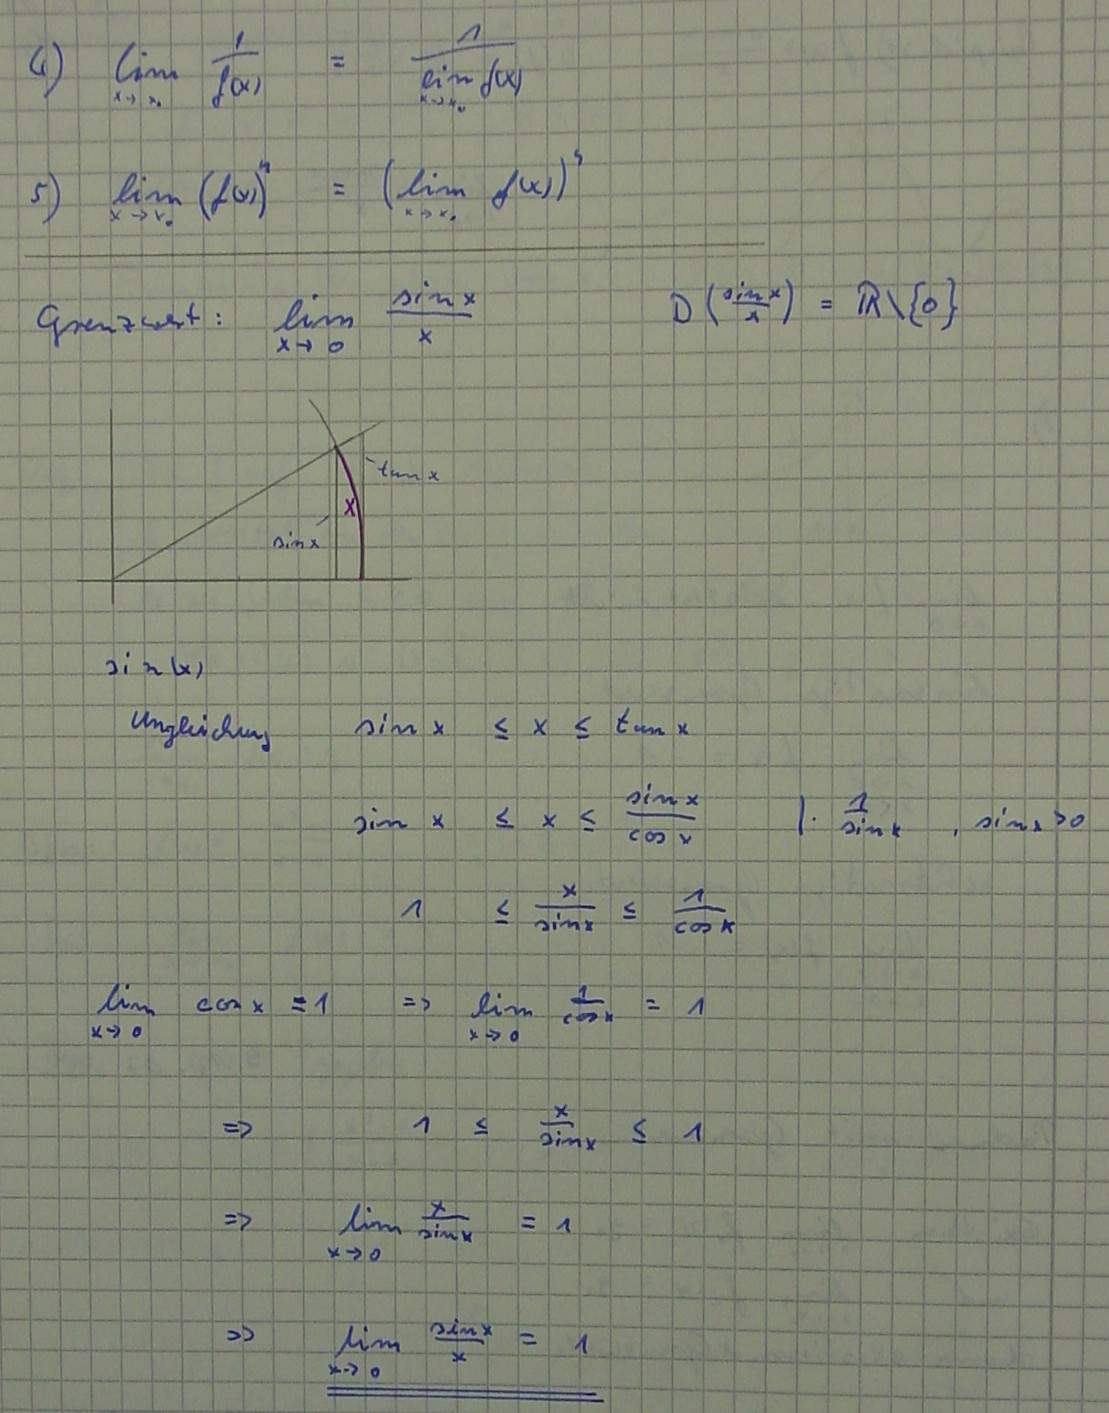 4) lim x→x₀ 1/f(x) = 1/(lim x→x₀ f(x))
5) lim x→x₀ (f(x))ⁿ = (lim x→x₀ f(x))ⁿ
Grenzwert: lim x→0 sin x/x D(sin x/x) = ℝ\{0}
tan x
x
sin x
sin(x)
Ungleichung sin x ≤ x ≤ tan x
sin x ≤ x ≤ sin x/cos x |· 1/sin x , sin x > 0
1 ≤ x/sin x ≤ 1/cos x
lim x→0 cos x = 1 => lim x→0 1/cos x = 1
=> 1 ≤ x/sin x ≤ 1
=> lim x→0 x/sin x = 1
=> lim x→0 sin x/x = 1